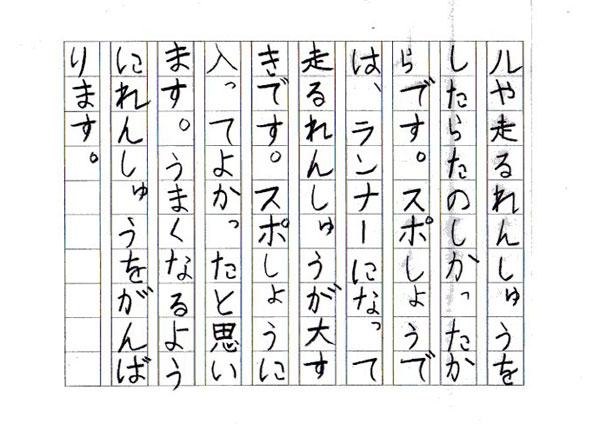 ルや走るれんしゅうを
したらたのしかったか
らです。スポしょうで
は、ランナーになって
走るれんしゅうが大す
きです。スポしょうに
入ってよかったと思い
ます。うまくなるよう
にれんしゅうをがんば
ります。